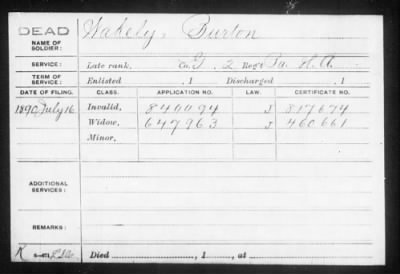 DEAD Wakely, Burton
NAME OF SOLDIER:
SERVICE: Late rank, Co. G, 2 Reg't Pa. H.A.
TERM OF SERVICE: Enlisted , 1 Discharged , 1
DATE OF FILING. CLASS. APPLICATION NO. LAW. CERTIFICATE NO.
1890, July 16 Invalid, 840094 J 817674
Widow, 647963 J 460661
Minor,
ADDITIONAL SERVICES:
REMARKS:
K Died , 1 , at